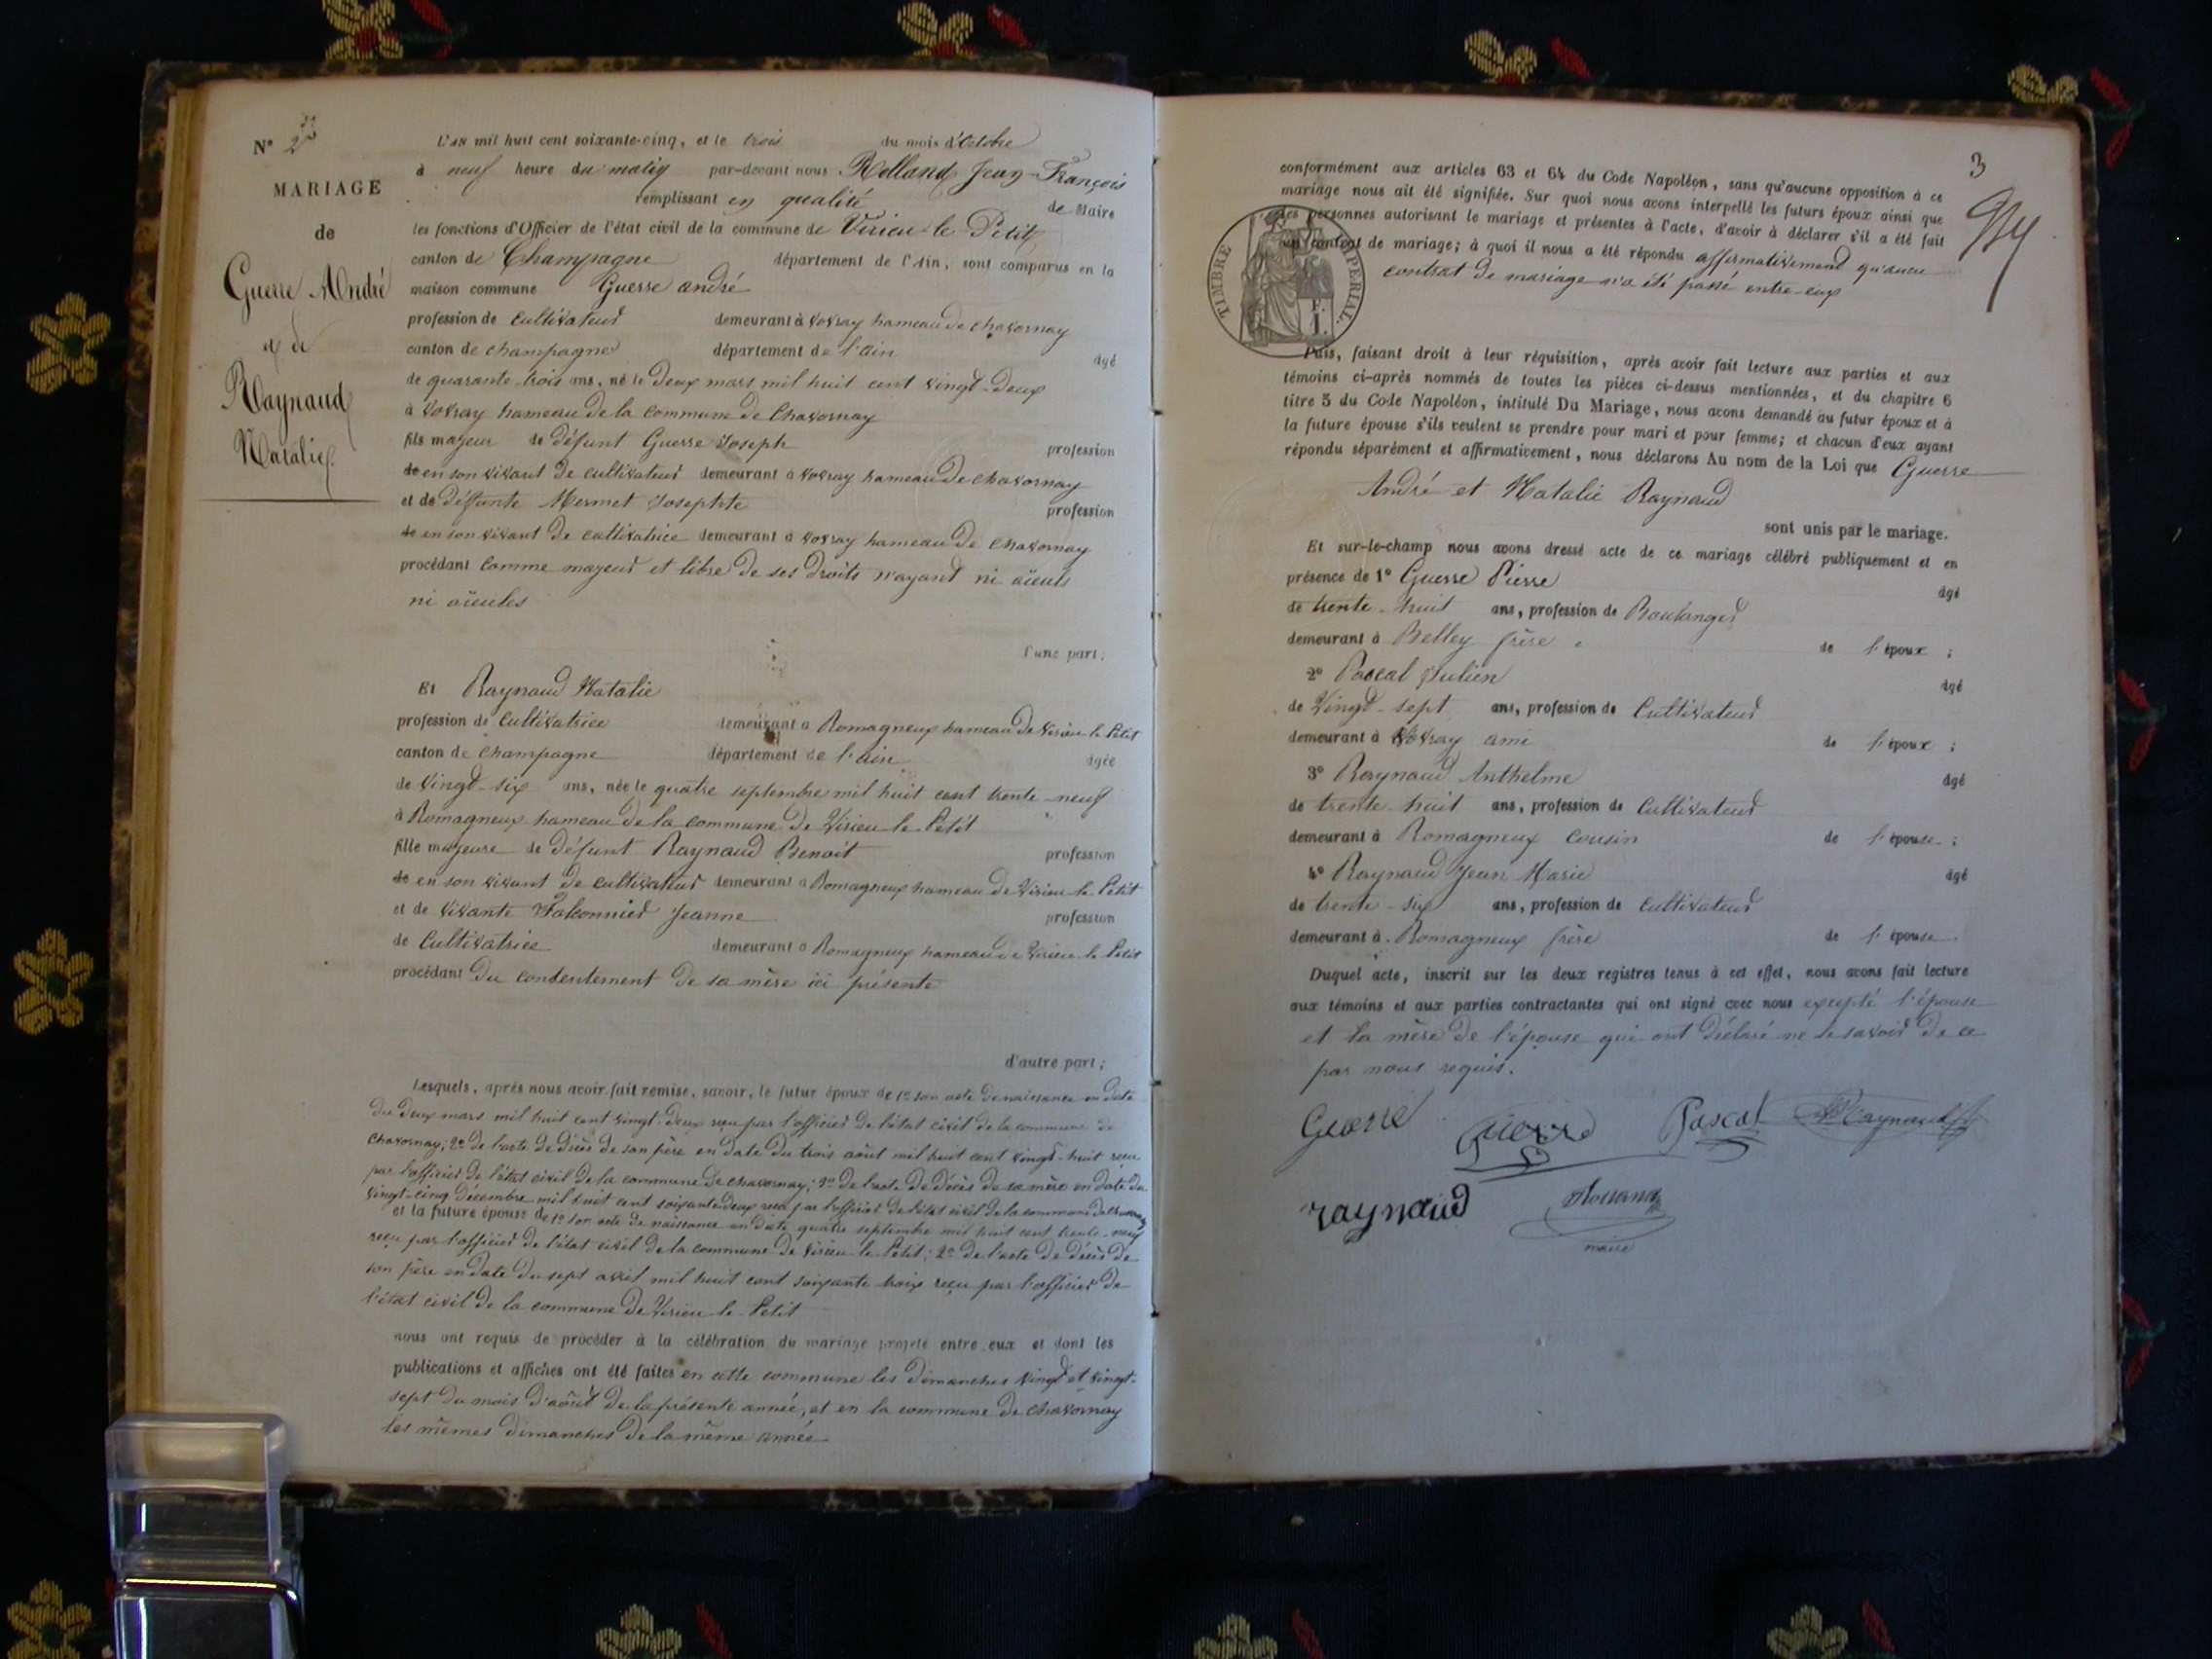 N° 2
MARIAGE
de
Guerre André
et de
Raynaud
Natalie
L'AN mil huit cent soixante-cinq, et le trois du mois d'Octobre
à neuf heure du matin par-devant nous Rolland Jean-François
remplissant en qualité de Maire
les fonctions d'Officier de l'état civil de la commune de Virieu-le-Petit
canton de Champagne département de l'Ain, sont comparus en la
maison commune Guerre andré
profession de cultivateur demeurant à vovray hameau de chavornay
canton de champagne département de l'ain âgé
de quarante-trois ans, né le deux mars mil huit cent vingt-deux
à vovray hameau de la commune de chavornay
fils majeur de défunt Guerre Joseph profession
de en son vivant de cultivateur demeurant à vovray hameau de chavornay
et de déffunte Mermet Josephte profession
de en son vivant de cultivatrice demeurant à vovray hameau de chavornay
procédant comme majeur et libre de ses droits n'ayant ni aïeuls
ni aïeules
l'une part;
Et Raynaud Natalie
profession de cultivatrice demeurant à Romagneux hameau de Virieu-le-Petit
canton de champagne département de l'ain âgée
de vingt-six ans, née le quatre septembre mil huit cent trente-neuf
à Romagneux hameau de la commune de Virieu-le-Petit
fille majeure de défunt Raynaud Benoit profession
de en son vivant de cultivateur demeurant à Romagneux hameau de Virieu-le-Petit
et de vivante Falconnier Jeanne profession
de cultivatrice demeurant à Romagneux hameau de Virieu-le-Petit
procédant du consentement de sa mère ici présente
d'autre part;
Lesquels, après nous avoir fait remise, savoir, le futur époux de 1° son acte de naissance en date
du deux mars mil huit cent vingt-deux reçu par l'officier de l'état civil de la commune de
chavornay; 2° de l'acte de décès de son père en date du trois août mil huit cent vingt-huit reçu
par l'officier de l'état civil de la commune de chavornay; 3° de l'acte de décès de sa mère en date du
vingt-cinq décembre mil huit cent soixante-deux reçu par l'officier de l'état civil de la commune de chavornay
et la future épouse de 1° son acte de naissance en date quatre septembre mil huit cent trente-neuf
reçu par l'officier de l'état civil de la commune de Virieu-le-Petit; 2° de l'acte de décès de
son père en date du sept avril mil huit cent soixante trois reçu par l'officier de
l'état civil de la commune de Virieu-le-Petit
nous ont requis de procéder à la célébration du mariage projeté entre eux et dont les
publications et affiches ont été faites en cette commune les dimanches vingt et vingt-
sept du mois d'août de la présente année, et en la commune de chavornay
les mêmes dimanches de la même année
3
conformément aux articles 63 et 64 du Code Napoléon, sans qu'aucune opposition à ce
mariage nous ait été signifiée. Sur quoi nous avons interpellé les futurs époux ainsi que
les personnes autorisant le mariage et présentes à l'acte, d'avoir à déclarer s'il a été fait
un contrat de mariage; à quoi il nous a été répondu affirmativement qu'aucun
contrat de mariage n'a été passé entre-eux
TIMBRE IMPERIAL.
1 F.
Puis, faisant droit à leur réquisition, après avoir fait lecture aux parties et aux
témoins ci-après nommés de toutes les pièces ci-dessus mentionnées, et du chapitre 6
titre 5 du Code Napoléon, intitulé Du Mariage, nous avons demandé au futur époux et à
la future épouse s'ils veulent se prendre pour mari et pour femme; et chacun d'eux ayant
répondu séparément et affirmativement, nous déclarons Au nom de la Loi que Guerre
André et Natalie Raynaud
sont unis par le mariage.
Et sur-le-champ nous avons dressé acte de ce mariage célébré publiquement et en
présence de 1° Guerre Pierre âgé
de trente-huit ans, profession de Boulanger
demeurant à Belley frère de l'époux;
2° Pascal Julien âgé
de Vingt-sept ans, profession de Cultivateur
demeurant à Vovray ami de l'époux;
3° Raynaud Anthelme âgé
de trente-huit ans, profession de Cultivateur
demeurant à Romagneux cousin de l'épouse;
4° Raynaud Jean Marie âgé
de trente-six ans, profession de Cultivateur
demeurant à Romagneux frère de l'épouse.
Duquel acte, inscrit sur les deux registres tenus à cet effet, nous avons fait lecture
aux témoins et aux parties contractantes qui ont signé avec nous excepté l'épouse
et la mère de l'épouse qui ont déclaré ne le savoir de ce
par nous requis.
Guerre Pascal Raynaud
raynaud Rolland
maire